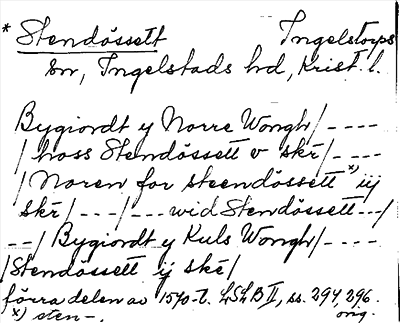 * Stendössett Ingelstorps
sn, Ingelstads hd, Krist. l.
Bygiordt y Norre Wongh/ ----
/ hoss Stendössett v skr/ ----
/ Noren for steendössett x) iij
skr/ ---/--- wid Stendössett --/
--/ Bygiordt y Kuls Wongh/ ----
/Stendössett ij skr/
förra delen av 1570-t. LSLB II, ss. 294, 296.
x) sten-, orig.